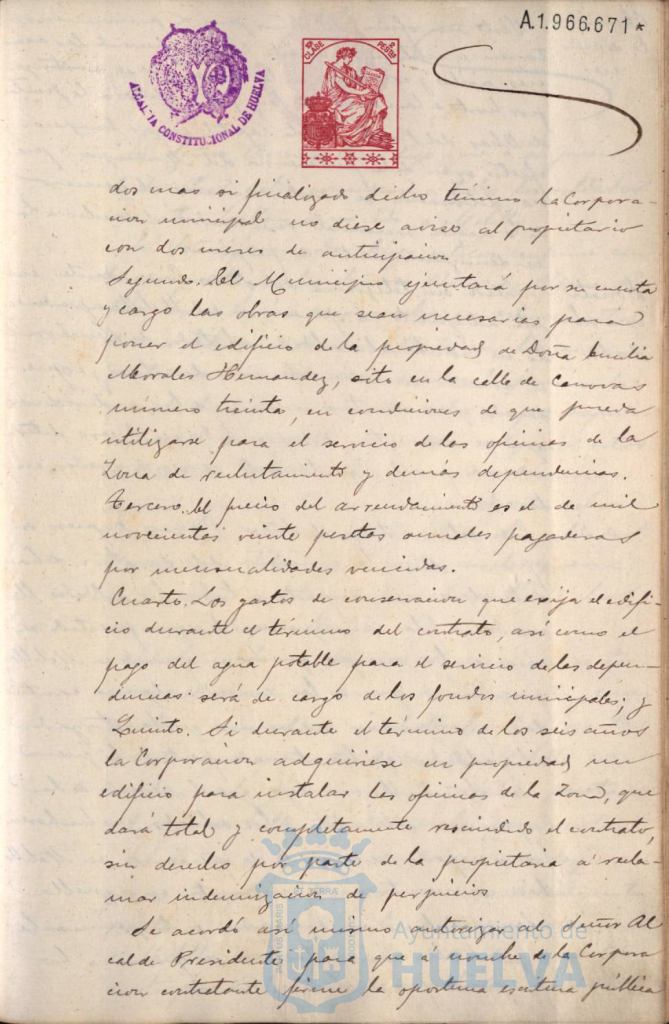 A.1.966.671*
ALCALDIA CONSTITUCIONAL DE HUELVA
CLASE
dos mas si finalizado dicho termino la Corpora-
cion municipal no diese aviso al propietario
con dos meses de anticipacion
Segundo. El Municipio ejecutará por su cuenta
y cargo las obras que sean necesarias para
poner el edificio de la propiedad de Doña Emilia
Morales Hernandez, sito en la calle de Canovas
número treinta, en condiciones de que pueda
utilizarse para el servicio de las oficinas de la
Zona de reclutamiento y demás dependencias.
Tercero. El precio del arrendamiento es el de mil
novecientas veinte pesetas anuales pagaderas
por mensualidades vencidas.
Cuarto. Los gastos de conservacion que exija el edifi-
cio durante el término del contrato, así como el
pago del agua potable para el servicio de las depen-
dencias será de cargo de los fondos municipales; y
Quinto. Si durante el término de los seis años
la Corporacion adquiriese en propiedad un
edificio para instalar las oficinas de la Zona, que
dará total y completamente rescindido el contrato,
sin derecho por parte de la propietaria á recla-
mar indemnizacion de perjuicios
Se acordó así mismo autorizar al Señor Al
calde Presidente para que á nombre de la Corpora
cion contratante firme la oportuna escritura pública
Ayuntamiento de
HUELVA